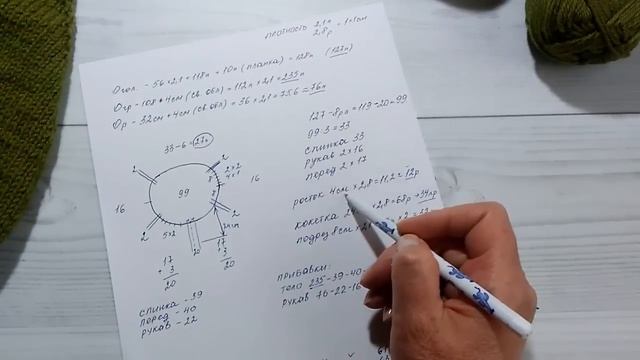 плотность 2,1п
2,8р = 1×1см
Огол. - 56×2,1 = 118п + 10п (планка) = 128п (127п)
Огр - 108 + 4см (св. обл) = 112п × 2,1 = 235п
Ор - 32см + 4см (св. обл) = 36 × 2,1 = 75.6 ≈ 76п
33-6=27п
2
2
2×2
4×1
16
99
16
2
2
5×2
10
17
+ 3
20
17
+ 3
20
спинка - 39
перед - 40
рукав - 22
127 - 8рл = 119-20=99
99:3=33
спинка 33
рукав 2×16
перед 2×17
росток 4см × 2,8 = 11,2 = 12р
кокетка × 2,8 = 68р → 34лр
подрез 8см ×
прибавки:
тело 235-39-40
рукав 76-22-16